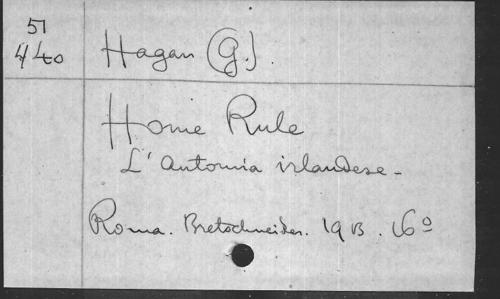 51
4/40
Hagan (G.).
Home Rule
L'Autonomia irlandese -
Roma. Bretschneider. 1913. 16°